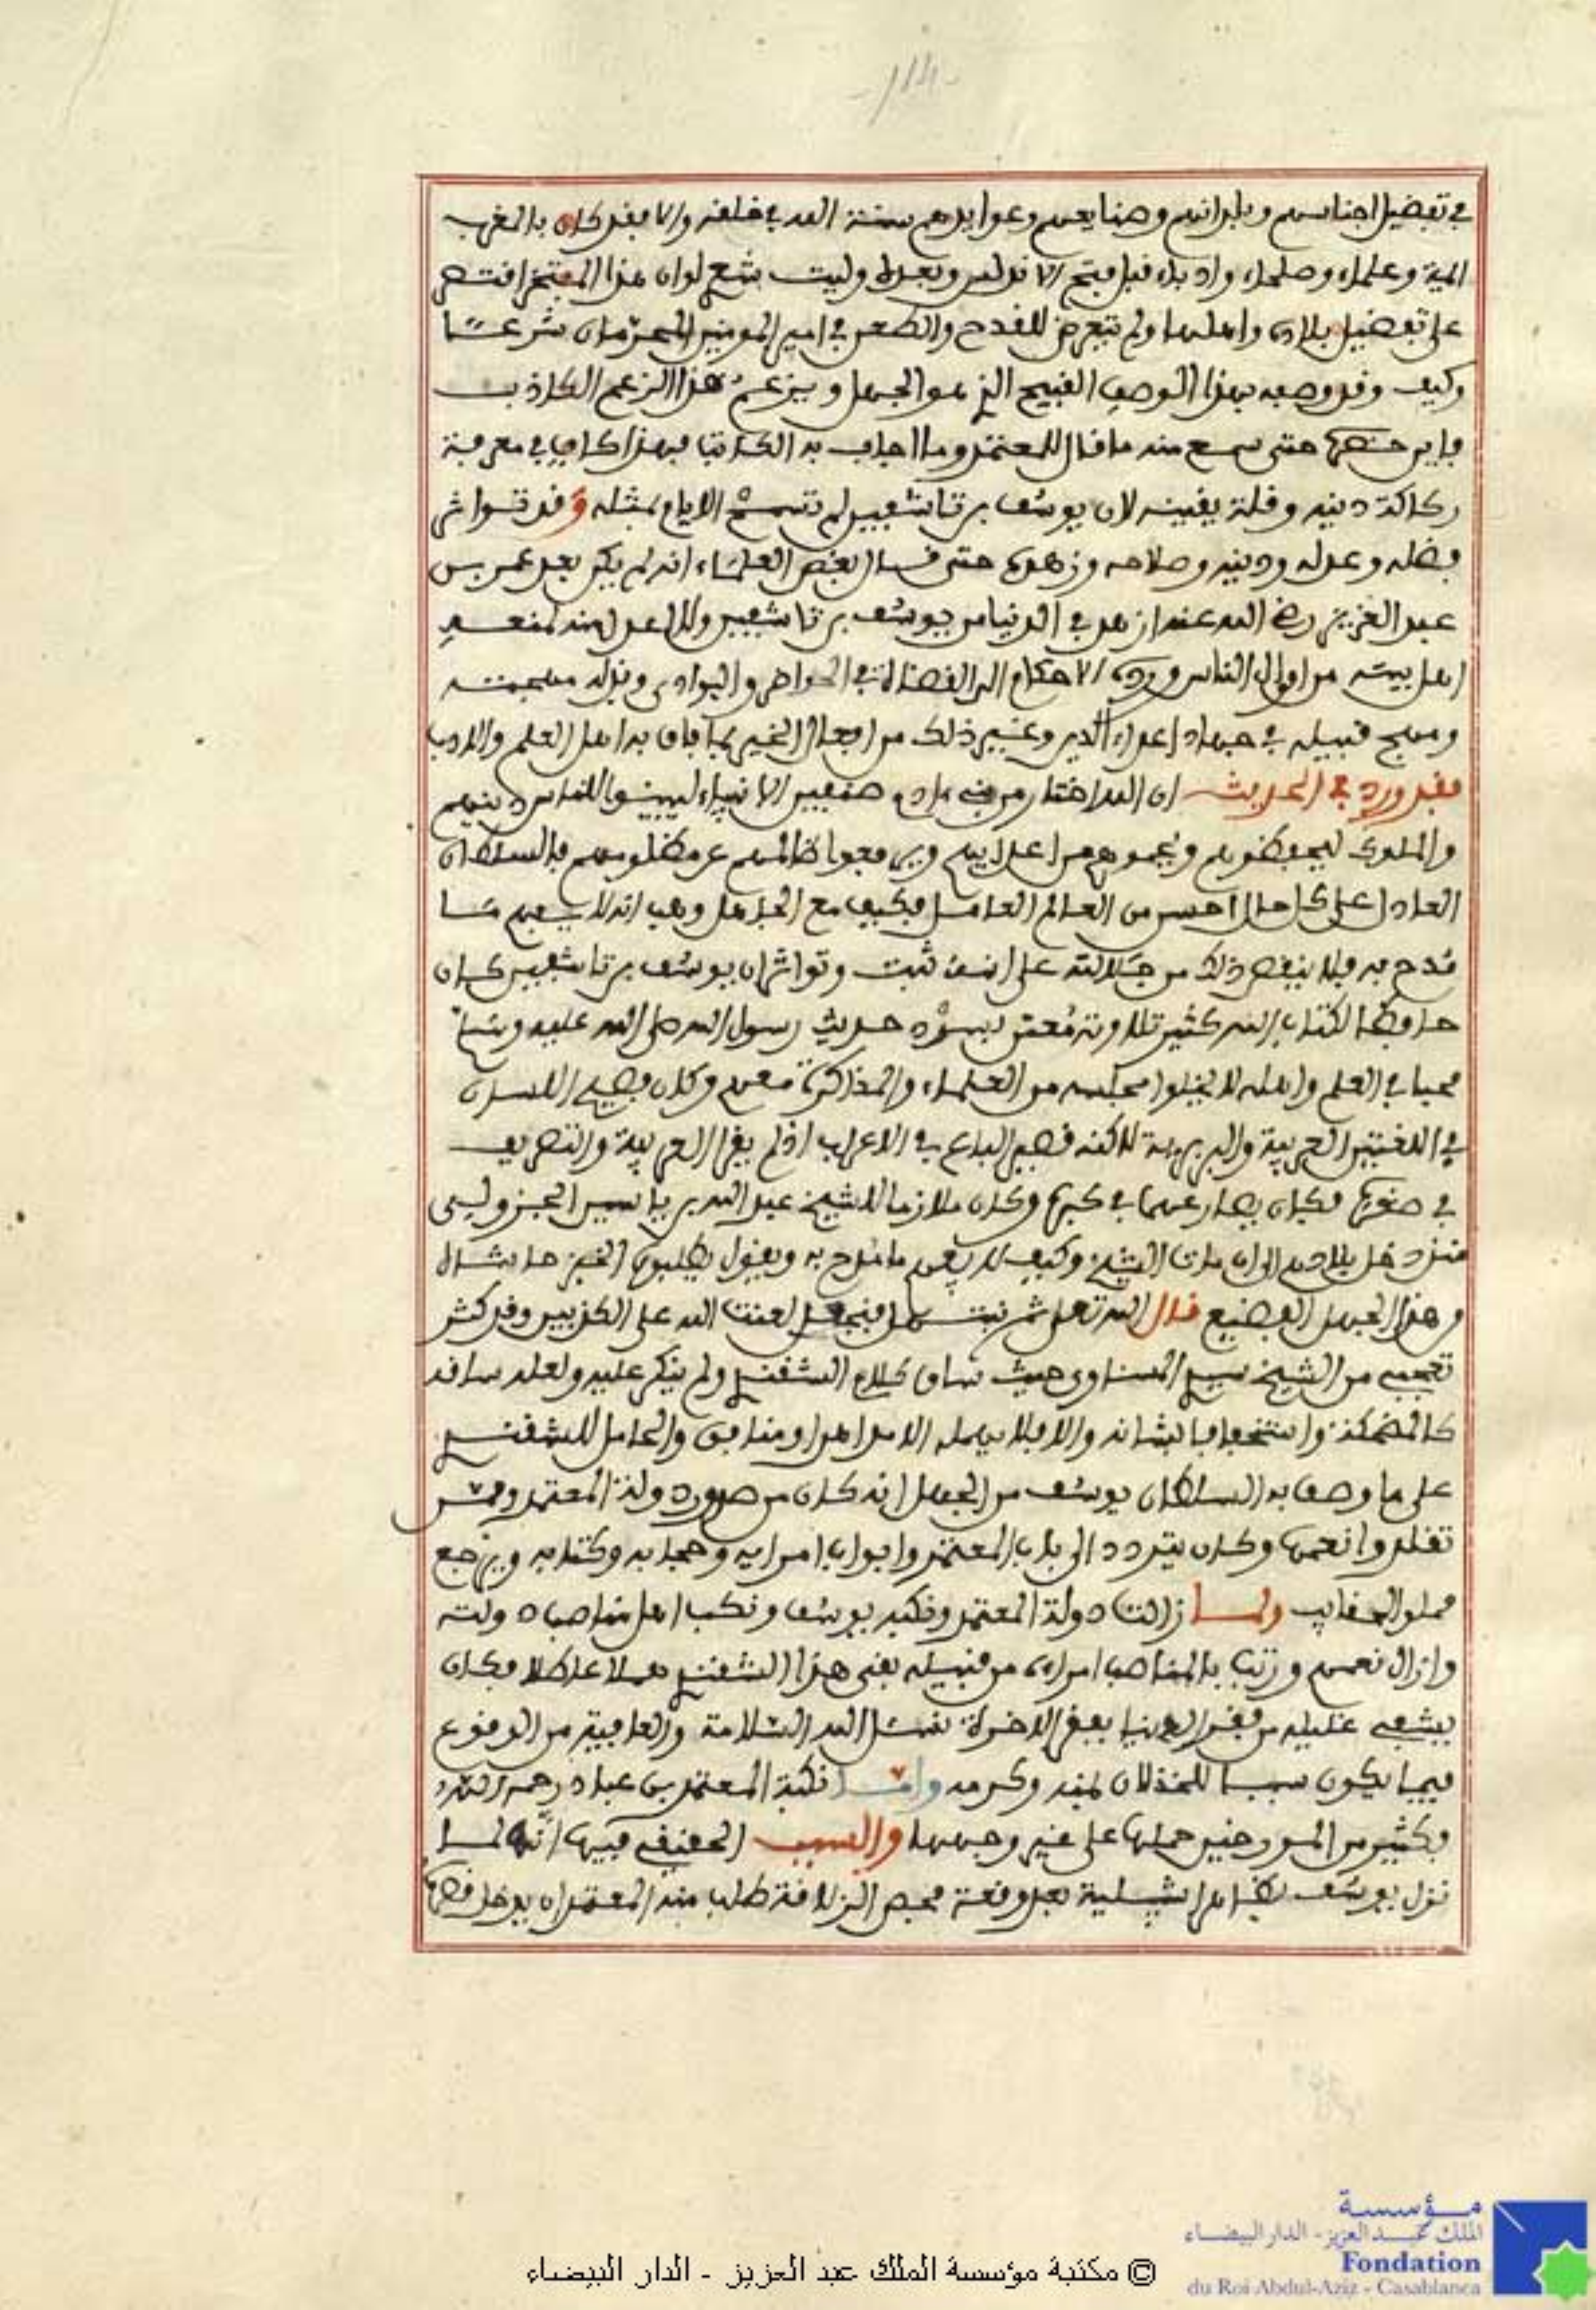 -114-
في تفضيل اجناسهم وبلدانهم وصنايعهم وعوايدهم سنة الله في خلقه والا فقد كان بالمغرب
ايمة وعلماء وصلحاء وادباء قبل فتح الاندلس وبعده وليت شعري لو ان هذا المفتخر اقتصر
على تفضيل بلاده واهلها ولم يتعرض للقدح والطعن في امير المومنين المحرمان شرعا
وكيف وقد وصفه بهذا الوصف القبيح الذي هو الجهل ويزعم هذا الزعم الكاذب
واين حضر حتى سمع منه ما قال للمعتمد وما اجاب به الكاتب فبهذا كاف في معرفة
ركاكة دينه وقلة يقينه لان يوسف بن تاشفين لم تسمح الايام بمثله وقد تواتر
فضله وعدله ودينه وصلاحه وزهده حتى قال بعض العلماء انه لم يكن بعد عمر بن
عبد العزيز رضي الله عنه ازهد في الدنيا من يوسف بن تاشفين ولا اعدل منه لمنعه
اهل بيته من اموال الناس ورده الاحكام الى القضاة في الحواضر والبوادي وبذله مهجته
ومهج قبيله في جهاد اعداء الدين وغير ذلك من افعال الخير بما فاق به اهل العلم والادب
فقد ورد في الحديث ان الله اختار من بني ءادم صنفين الانبياء ليبينوا للناس دينهم
والملوك ليحفظوهم ويحموهم من اعدايهم ويدفعوا ظالمهم عن مظلومهم فالسلطان
العادل على كل حال احسن من العالم العامل فكيف مع الجاهل وهب انه لا يفهم ما
مدح به فلا ينقص ذلك من جلالته على انه ثبت وتواتر ان يوسف بن تاشفين كان
حافظا لكتاب الله كثير تلاوته معتن بسرد حديث رسول الله صلى الله عليه وسلم
محبا في العلم واهله لا يخلوا مجلسه من العلماء والمذاكرة معهم وكان فصيح اللسان
في اللغتين العربية والبربرية لاكنه قصير الباع في الاعراب اذ لم يقرا العربية والتصريف
في صغره فكان يضارعهما في كبره وكان ملازما للشيخ عبد الله بن ياسين الجزولي
منذ دخل بلادهم الى ان مات الشيخ وكيف لا يفهم ما مدح به ويقول يطلبون الخبز حاشاه
من هذا الجهل الفضيع قال الله تعلى ثم نبتهل فنجعل لعنت الله على الكذبين وقد كثر
تعجبي من الشيخ سيدي المسناوي حيث ساق كلام الشقندي ولم ينكر عليه ولعله ساقه
كالمضحكة واستخفافا بشانه والا فلا يهمله الامداهن او منافق والحامل للشقندي
على ما وصف به السلطان يوسف من الجهل انه كان من صدور دولة المعتمد وممن
تقلد وانعمها وكان يتردد الى باب المعتمد وابواب امرايه وحجابه وكتابه ويرجع
مملو الحقايب ولما زالت دولة المعتمد ونكبه يوسف ونكب اهل مناصب دولته
وازال نعمهم ورتب بالمناصب امراء من قبيله بقي هذا الشقندي مهملا عاطلا فكان
يشفي غليله من فقر الدنيا بفقر الاخرة نسئل الله السلامة والعافية من الوقوع
فيما يكون سببا للخذلان بمنه وكرمه وامـا نكبة المعتمد بن عباد رحمه الله
فكثير من المورخين حملها على غير وجهها والسبب الحقيقي فيها انه لما
نزل يوسف بظاهر اشبيلية بعد وقعة فحص الزلاقة طلب منه المعتمد ان يدخل قصره
مؤسسة
الملك عبد العزيز - الدار البيضاء
Fondation
du Roi Abdul-Aziz - Casablanca
© مكتبة مؤسسة الملك عبد العزيز - الدار البيضاء